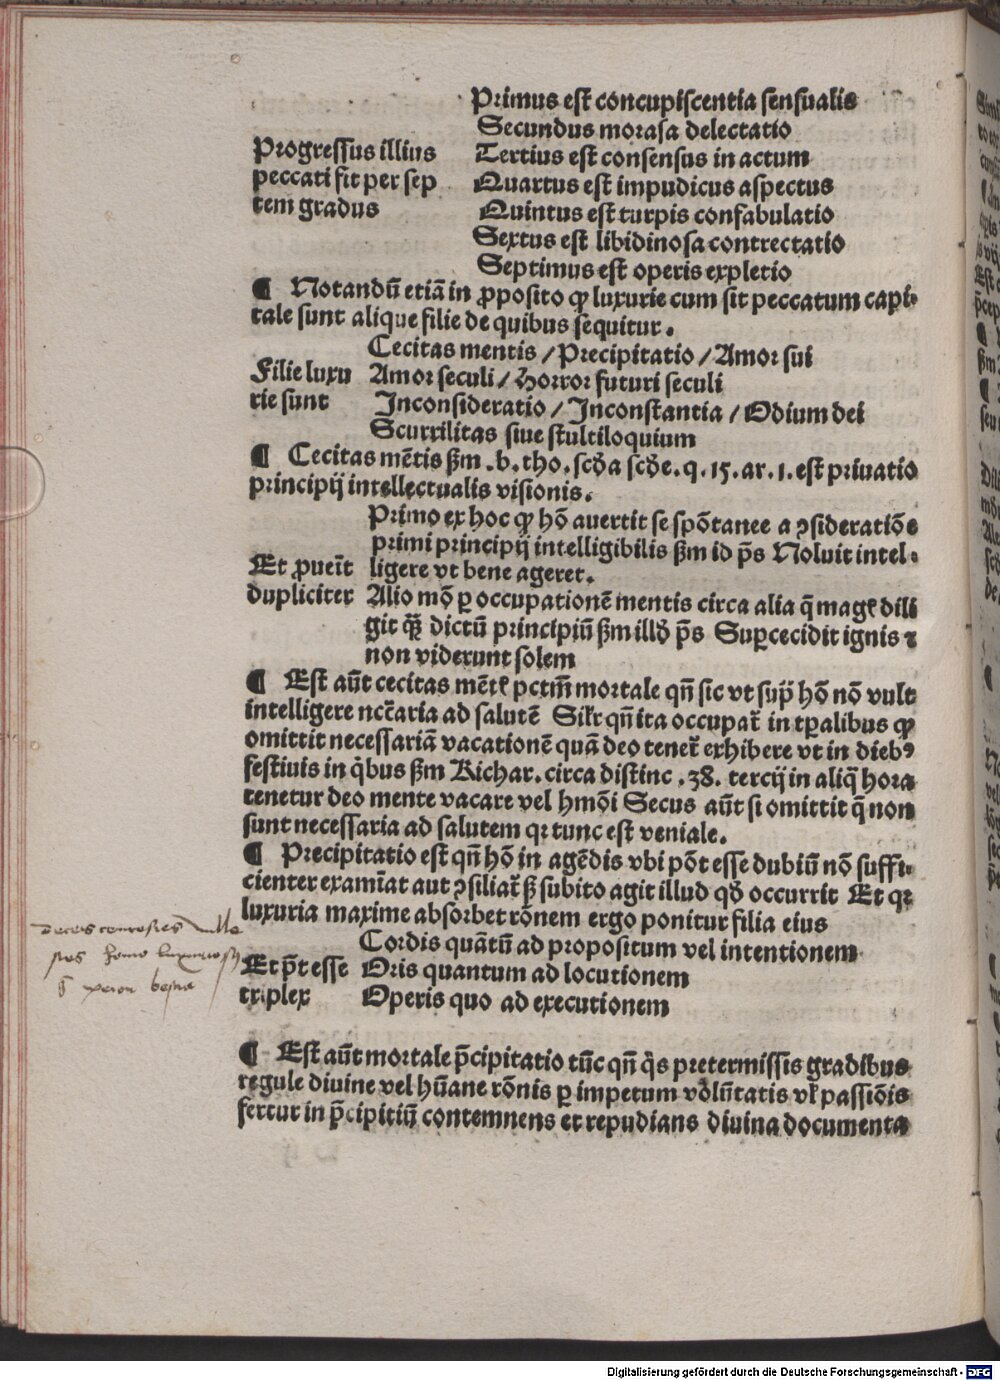 Progressus illius
peccati fit per sep
tem gradus
Primus est concupiscentia sensualis
Secundus morasa delectatio
Tertius est consensus in actum
Quartus est impudicus aspectus
Quintus est turpis confabulatio
Sextus est libidinosa contrectatio
Septimus est operis expletio
¶ Notandū etiā in ꝓposito ꝙ luxurie cum sit peccatum capi-
tale sunt alique filie de quibus sequitur.
Filie luxu
rie sunt
Cecitas mentis / Precipitatio / Amor sui
Amor seculi / Horror futuri seculi
Inconsideratio / Inconstantia / Odium dei
Scurrilitas siue stultiloquium
¶ Cecitas mētis ẜm .b. tho. scd̓a scd̓e. q. 15. ar. 1. est priuatio
principij intellectualis visionis.
Et ꝓuenīt
dupliciter
Primo ex hoc ꝙ hō auertit se spōtanee a ꝯsideratiōe
primi principij intelligibilis ẜm id p̄s Noluit intel-
ligere vt bene ageret.
Alio mō ꝑ occupationē mentis circa alia q̄ magꝭ dili
git dictū principiū ẜm illd̓ p̄s Suꝑcecidit ignis ⁊
non viderunt solem
¶ Est aūt cecitas mētꝭ pctm̄ mortale qn̄ sic vt sup̄ hō nō vult
intelligere nccāria ad salutē Silr qn̄ ita occupat̄ in tꝑalibus ꝙ
omittit necessariā vacationē quā deo tenet̄ exhibere vt in diebꝰ
festiuis in q̇bus ẜm Richar. circa distinc .38. tercij in aliq̄ hora
tenetur deo mente vacare vel hmōi Secus aūt si omittit q̄ non
sunt necessaria ad salutem qꝛ tunc est veniale.
¶ Precipitatio est qn̄ hō in agēdis vbi pōt esse dubiū nō suffi-
cienter examīat aut ꝯsiliat̄ ẜꝫ subito agit illud qd̓ occurrit Et qꝛ
luxuria maxime absorbet rōnem ergo ponitur filia eius
Et pōt esse
triplex
Cordis quātū ad propositum vel intentionem
Oris quantum ad locutionem
Operis quo ad executionem
¶ Est aūt mortale p̄cipitatio tūc qn̄ q̇s pretermissis gradibus
regule diuine vel hūane rōnis ꝑ impetum volūtatis vl̓ passiōis
fertur in p̄cipitiū contemnens et repudians diuina documenta
Digitalisierung gefördert durch die Deutsche Forschungsgemeinschaft - DFG